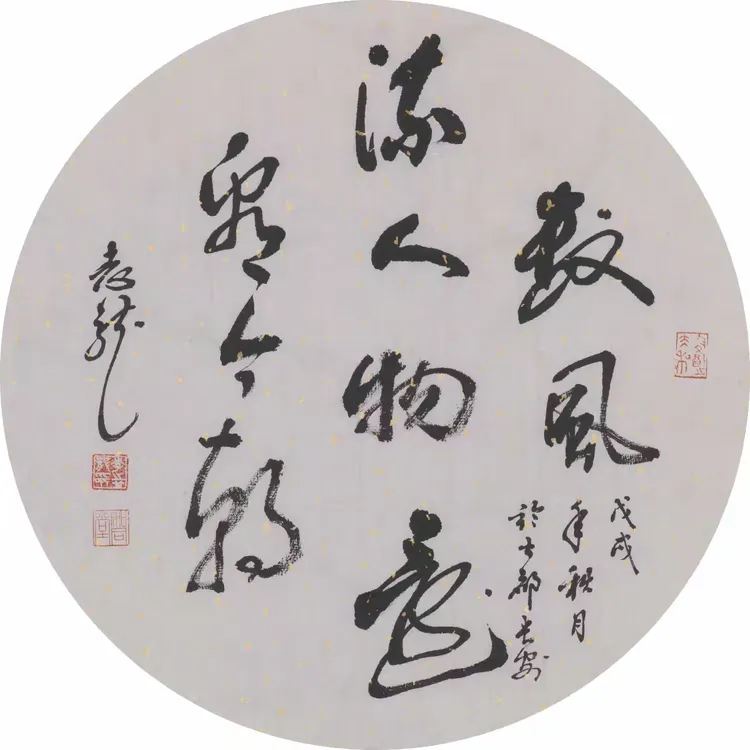 数風
戊戌
年秋月
於古都長安
流人物還
看今朝